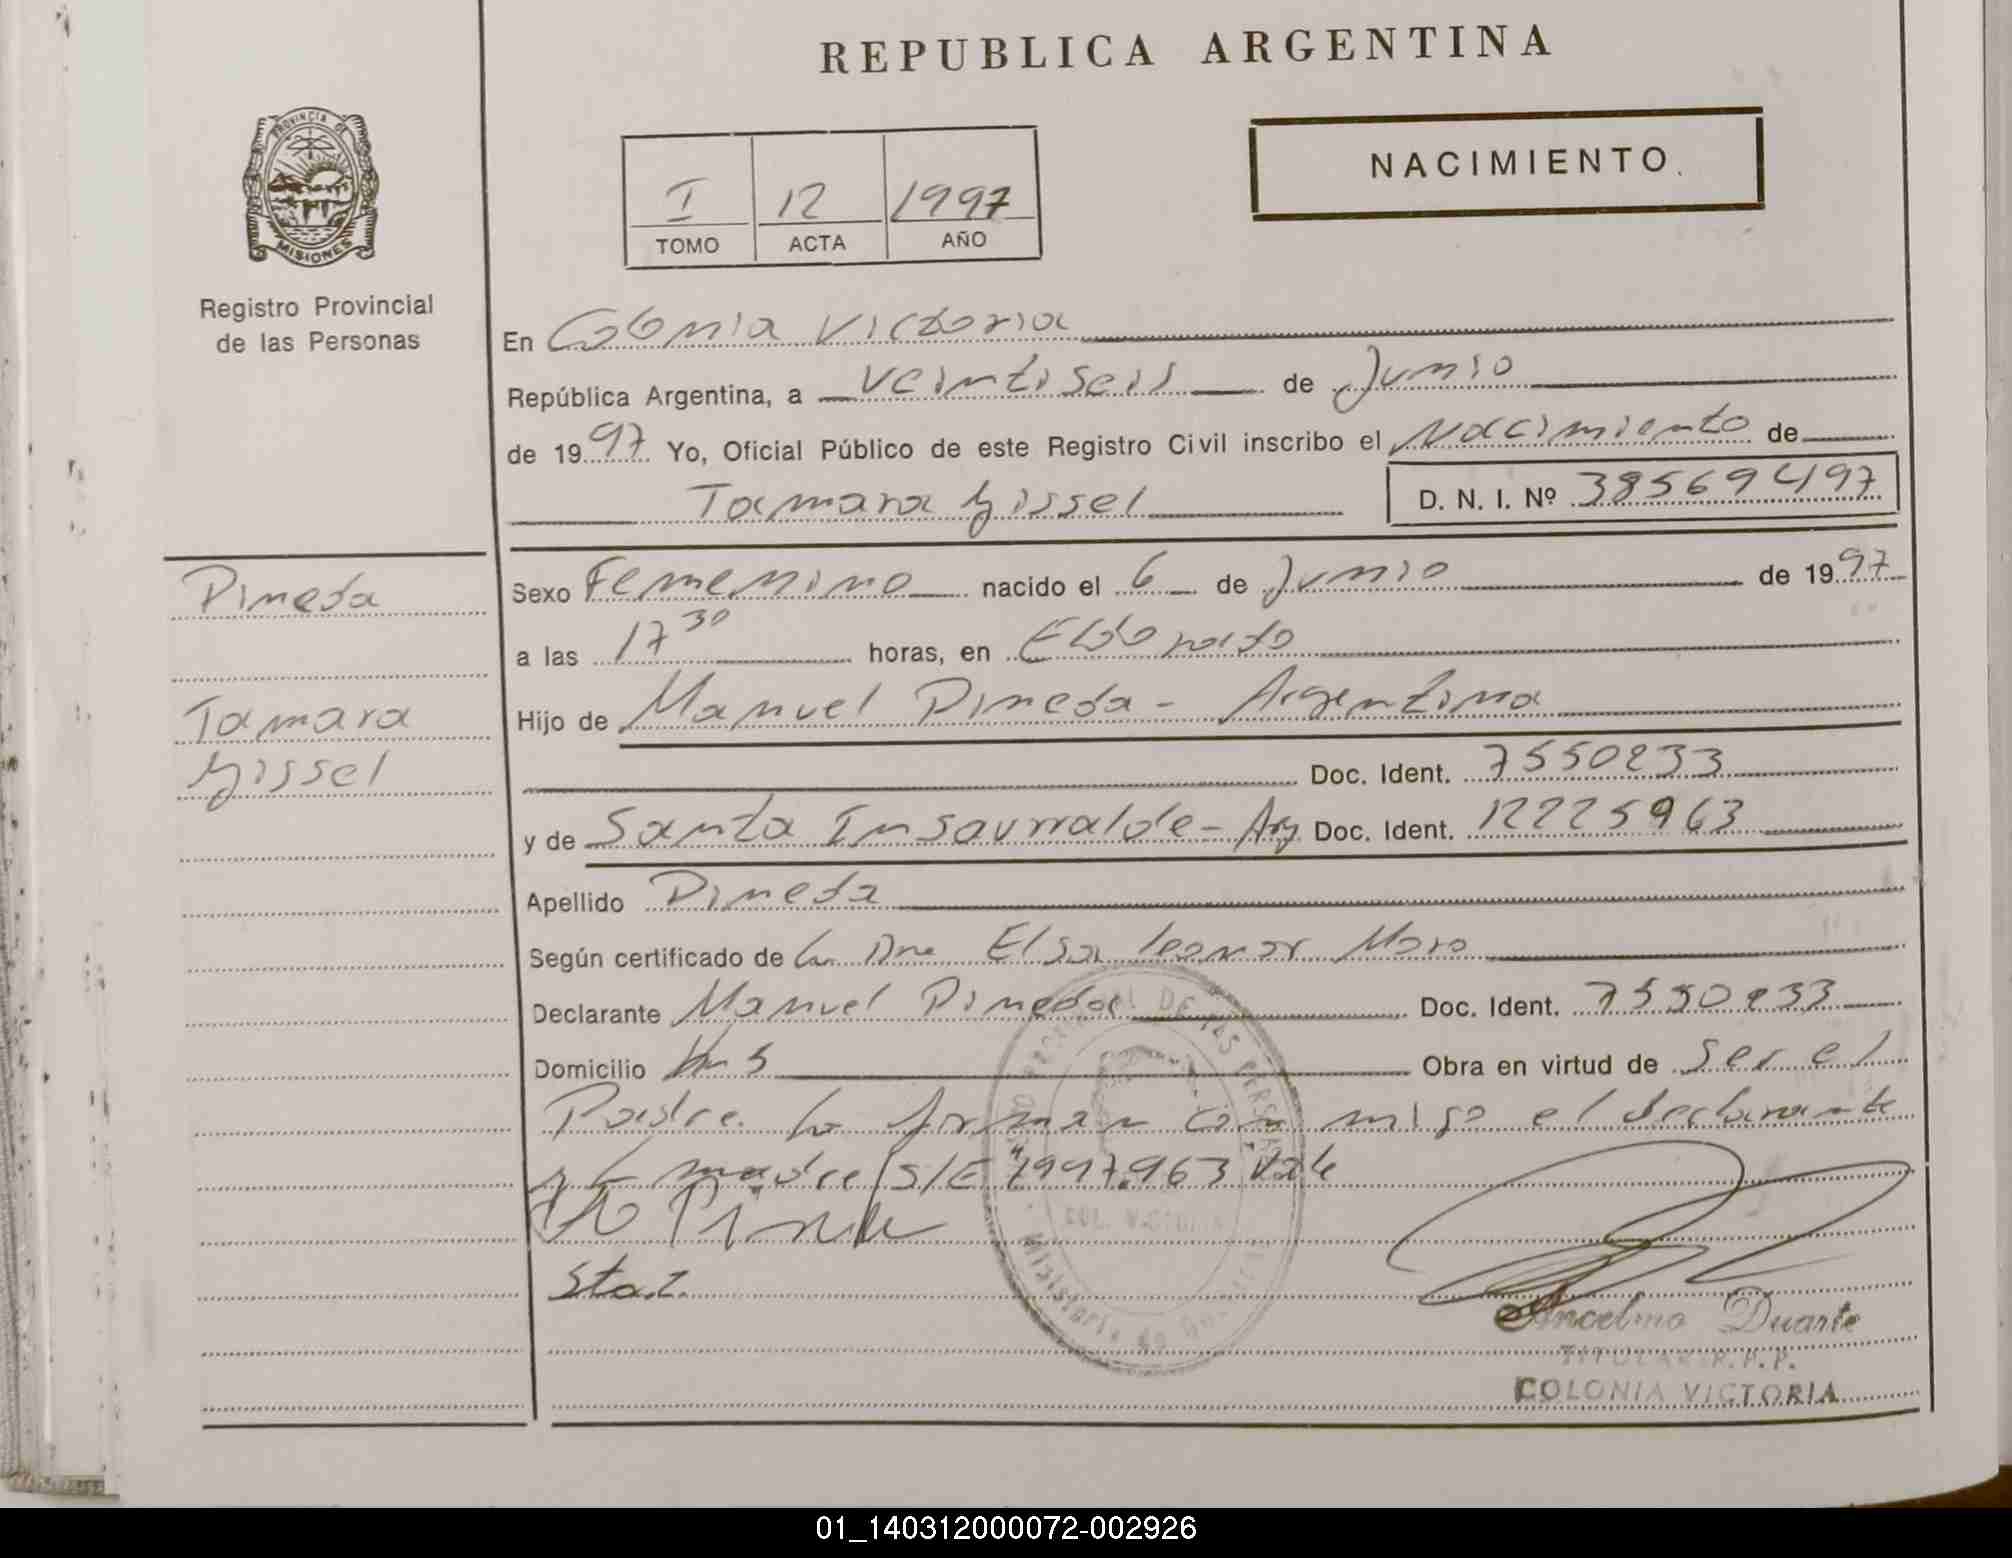 REPUBLICA ARGENTINA
PROVINCIA DE
MISIONES
Registro Provincial
de las Personas
I 12 1997
TOMO ACTA AÑO
NACIMIENTO
En Colonia Victoria
República Argentina, a veintiseis de Junio
de 1997 Yo, Oficial Público de este Registro Civil inscribo el Nacimiento de
Tamara Gissel D. N. I. Nº 38569497
Pineda
Tamara
Gissel
Sexo Femenino nacido el 6 de Junio de 1997
a las 17 30 horas, en Eldorado
Hijo de Manuel Pineda - Argentina
Doc. Ident. 7550233
y de Santa Insaurralde - Arg Doc. Ident. 12225963
Apellido Pineda
Según certificado de La Dra Elsa Leonor Moro
Declarante Manuel Pineda Doc. Ident. 7550233
Domicilio Km 5 Obra en virtud de ser el
Padre. La firman con migo el declarante
y la madre S/E 1997.963 Vale
Sta. I.
DE LAS PERSONAS
COL. VICTORIA
Ministerio de
Ancelmo Duarte
TITULAR R. P. P.
COLONIA VICTORIA
01_140312000072-002926